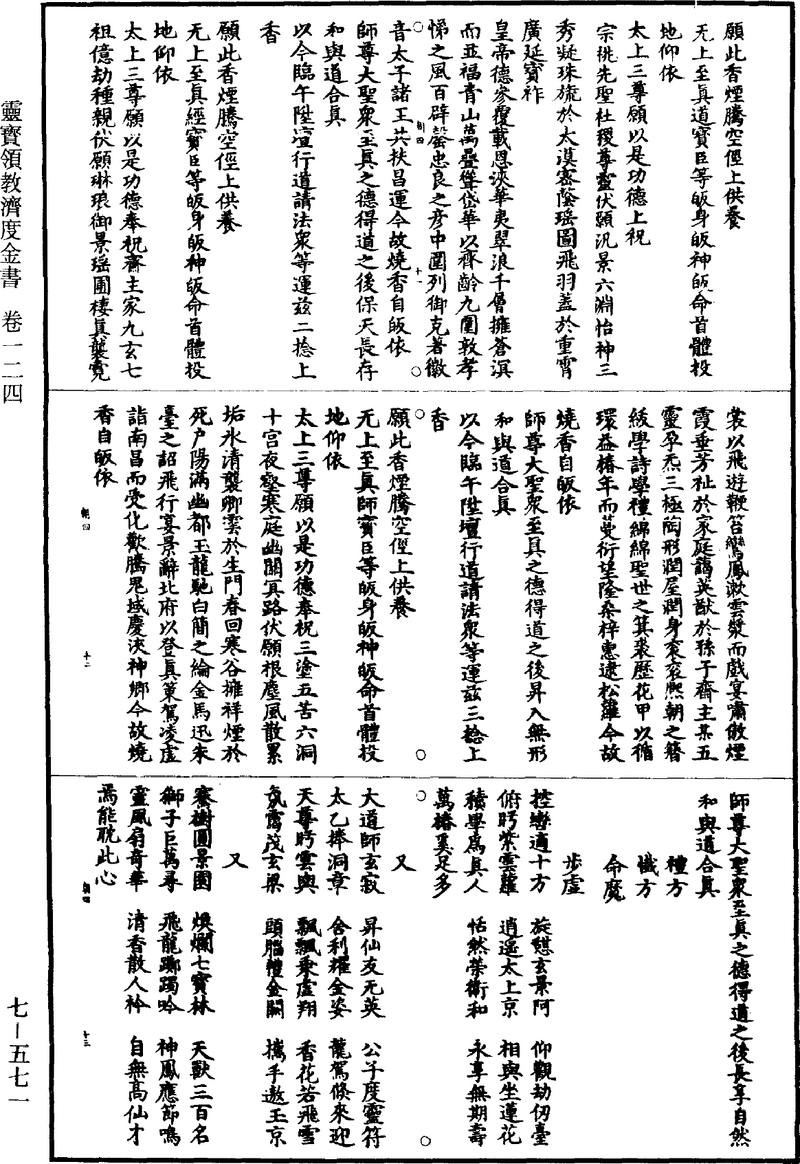 靈寶領教濟度金書　卷一二四
七－五七一
願此香煙騰空徑上供養
无上至真道寶臣等皈身皈神皈命首體投
地仰依
太上三尊願以是功德上祝
宗祧先聖社稷尊靈伏願汎景六淵怡神三
秀凝珠旒於太漠密蔭瑤圖飛羽蓋於重霄
廣延寶祚
皇帝德參覆載恩浹華夷翠浪千層擁蒼溟
而並福青山萬疊聳岱華以齊齡九圍敦孝
悌之風百辟罄忠良之彥中闈列御克著徽
音太子諸王共扶昌運今故燒香自皈依
師尊大聖衆至真之德得道之後保天長存
和與道合真
以今臨午陞壇行道請法衆等運茲二捻上
香
願此香煙騰空徑上供養
无上至真經寶臣等皈身皈神皈命首體投
地仰依
太上三尊願以是功德奉祝齋主家九玄七
祖億劫種親伏願琳琅御景瑤圃棲真襲霓
裳以飛遊鞭笞鸞鳳漱雲漿而戲宴嘯傲煙
霞垂芳祉於家庭藹英猷於孫子齋主某五
靈孕炁三極陶形潤屋潤身衮衮熙朝之簪
紱學詩學禮綿綿聖世之箕裘歷花甲以循
環益椿年而蔓衍望隆桑梓惠逮松蘿今故
燒香自皈依
師尊大聖衆至真之德得道之後昇入無形
和與道合真
以今臨午陞壇行道請法衆等運茲三捻上
香
願此香煙騰空徑上供養
无上至真師寶臣等皈身皈神皈命首體投
地仰依
太上三尊願以是功德奉祝三塗五苦六洞
十宮夜壑寒庭幽關冥路伏願根塵風散累
垢氷清襲卿雲於生門春回寒谷擁祥煙於
死戶陽滿幽都玉龍馳白簡之綸金馬迅朱
臺之詔飛行宴景辭北府以登真策駕凌虛
詣南昌而受化歡騰鬼域慶浹神鄉今故燒
香自皈依
師尊大聖衆至真之德得道之後長享自然
和與道合真
禮方
懺方
命魔
步虛
控轡適十方　旋憩玄景阿　仰觀劫仞臺
俯眄紫雲羅　逍遙太上京　相與坐蓮花
積學爲真人　恬然榮衛和　永享無期壽
萬椿奚足多
又
大道師玄寂　昇仙友无英　公子度靈符
太乙捧洞章　舍利耀金姿　龍駕倏來迎
天尊眄雲輿　飄飄乘虛翔　香花若飛雪
氛靄茂玄梁　頭腦禮金闕　攜手遨玉京
又
騫樹圓景園　煥爛七寶林　天獸三百名
獅子巨萬尋　飛龍躑躅吟　神鳳應節鳴
靈風扇奇華　清香散人衿　自無高仙才
焉能耽此心